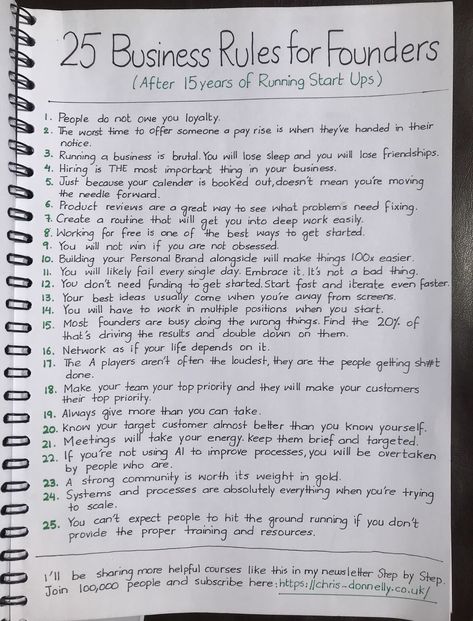 25 Business Rules for Founders
(After 15 years of Running Start Ups)
1. People do not owe you loyalty.
2. The worst time to offer someone a pay rise is when they've handed in their
notice.
3. Running a business is brutal. You will lose sleep and you will lose friendships.
4. Hiring is THE most important thing in your business.
5. Just because your calender is booked out, doesn't mean you're moving
the needle forward.
6. Product reviews are a great way to see what problems need fixing.
7. Create a routine that will get you into deep work easily.
8. Working for free is one of the best ways to get started.
9. You will not win if you are not obsessed.
10. Building your Personal Brand alongside will make things 100x easier.
11. You will likely fail every single day. Embrace it. It's not a bad thing.
12. You don't need funding to get started. Start fast and iterate even faster.
13. Your best ideas usually come when you're away from screens.
14. You will have to work in multiple positions when you start.
15. Most founders are busy doing the wrong things. Find the 20% of
that's driving the results and double down on them.
16. Network as if your life depends on it.
17. The A players aren't often the loudest, they are the people getting sh#t
done.
18. Make your team your top priority and they will make your customers
their top priority.
19. Always give more than you can take.
20. Know your target customer almost better than you know yourself.
21. Meetings will take your energy. keep them brief and targeted.
22. If you're not using AI to improve processes, you will be overtaken
by people who are.
23. A strong community is worth its weight in gold.
24. Systems and processes are absolutely everything when you're trying
to scale.
25. You can't expect people to hit the ground running if you don't
provide the proper training and resources.
I'll be sharing more helpful courses like this in my newsletter Step by Step.
Join 100,000 people and subscribe here: https://chris-donnelly.co.uk/